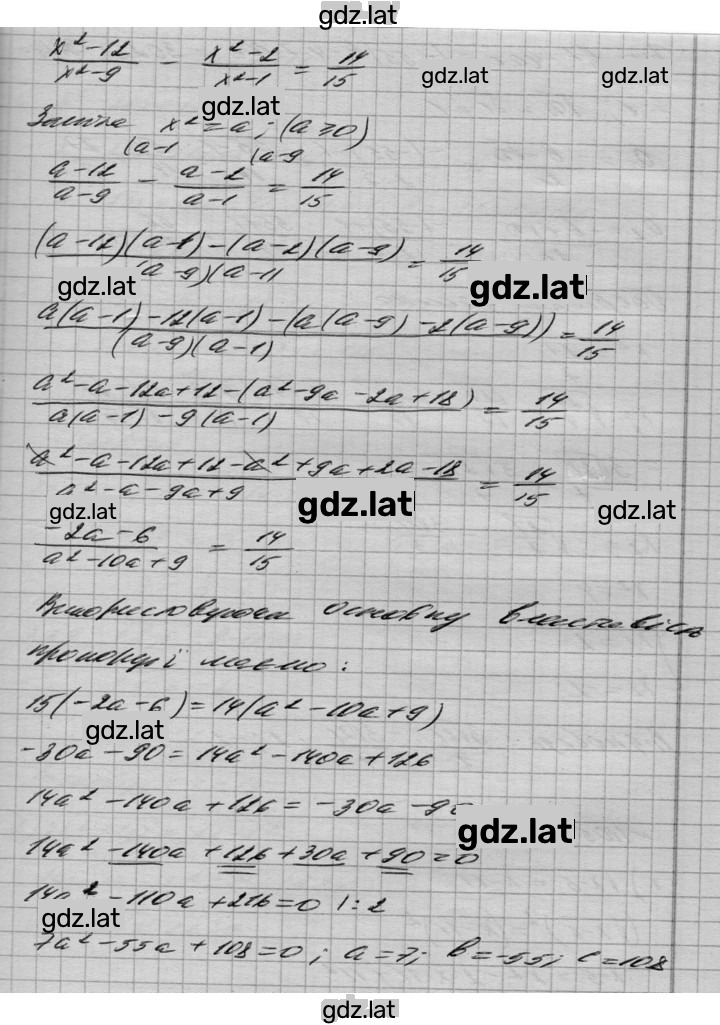 gdz.lat
x²-12/x²-9 - x²-2/x²-1 = 14/15
gdz.lat gdz.lat
gdz.lat
Заміна x² = a; (a≥0)
(a-1 (a-9
a-12/a-9 - a-2/a-1 = 14/15
(a-12)(a-1)-(a-2)(a-9)/(a-9)(a-1) = 14/15
gdz.lat gdz.lat
a(a-1)-12(a-1)-(a(a-9)-2(a-9))/(a-9)(a-1) = 14/15
a²-a-12a+12-(a²-9a-2a+18)/a(a-1)-9(a-1) = 14/15
a²-a-12a+12-a²+9a+2a-18/a²-a-9a+9 = 14/15
gdz.lat gdz.lat gdz.lat
-2a-6/a²-10a+9 = 14/15
Використовуючи основну властивість
пропорції маємо:
15(-2a-6)=14(a²-10a+9)
gdz.lat
-30a-90=14a²-140a+126
14a²-140a+126=-30a-90
gdz.lat
14a²-140a+126+30a+90=0
14a²-110a+216=0 |:2
gdz.lat
7a²-55a+108=0; a=7; b=-55; c=108
gdz.lat